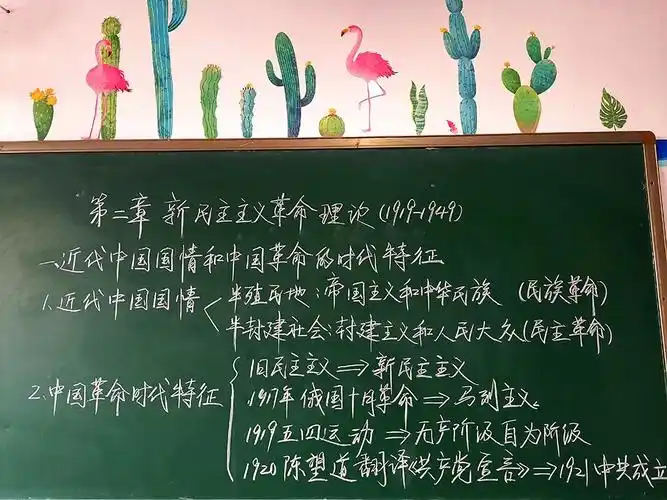 第二章 新民主主义革命理论(1919-1949)
一、近代中国国情和中国革命的时代特征
1.近代中国国情
半殖民地：帝国主义和中华民族 (民族革命)
半封建社会：封建主义和人民大众(民主革命)
2.中国革命时代特征
旧民主主义⇒新民主主义
1917年俄国十月革命⇒马列主义
1919五四运动⇒无产阶级自为阶级
1920陈望道翻译《共产党宣言》⇒1921中共成立